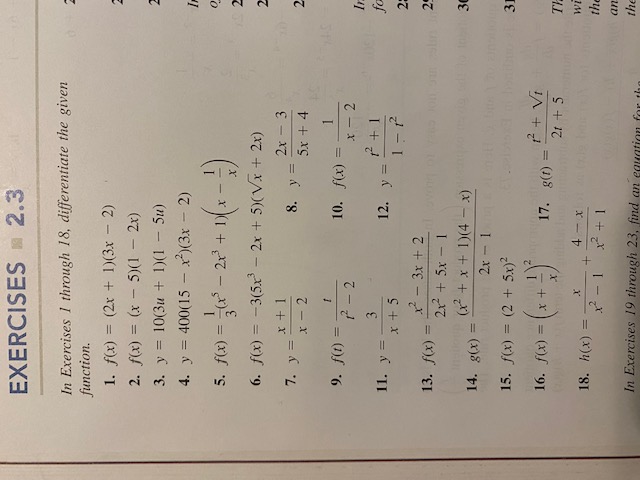 EXERCISES ■ 2.3
In Exercises 1 through 18, differentiate the given
function.
1. f(x) = (2x + 1)(3x − 2)
2. f(x) = (x − 5)(1 − 2x)
3. y = 10(3u + 1)(1 − 5u)
4. y = 400(15 − x²)(3x − 2)
5. f(x) = 1/3(x⁵ − 2x³ + 1)(x − 1/x)
6. f(x) = −3(5x³ − 2x + 5)(√x + 2x)
7. y = (x + 1)/(x − 2) 8. y = (2x − 3)/(5x + 4)
9. f(t) = t/(t² − 2) 10. f(x) = 1/(x − 2)
11. y = 3/(x + 5) 12. y = (t² + 1)/(1 − t²)
13. f(x) = (x² − 3x + 2)/(2x² + 5x − 1)
14. g(x) = (x² + x + 1)(4 − x)/(2x − 1)
15. f(x) = (2 + 5x)²
16. f(x) = (x + 1/x)² 17. g(t) = (t² + √t)/(2t + 5)
18. h(x) = x/(x² − 1) + (4 − x)/(x² + 1)
In Exercises 19 through 23, find an equation for the